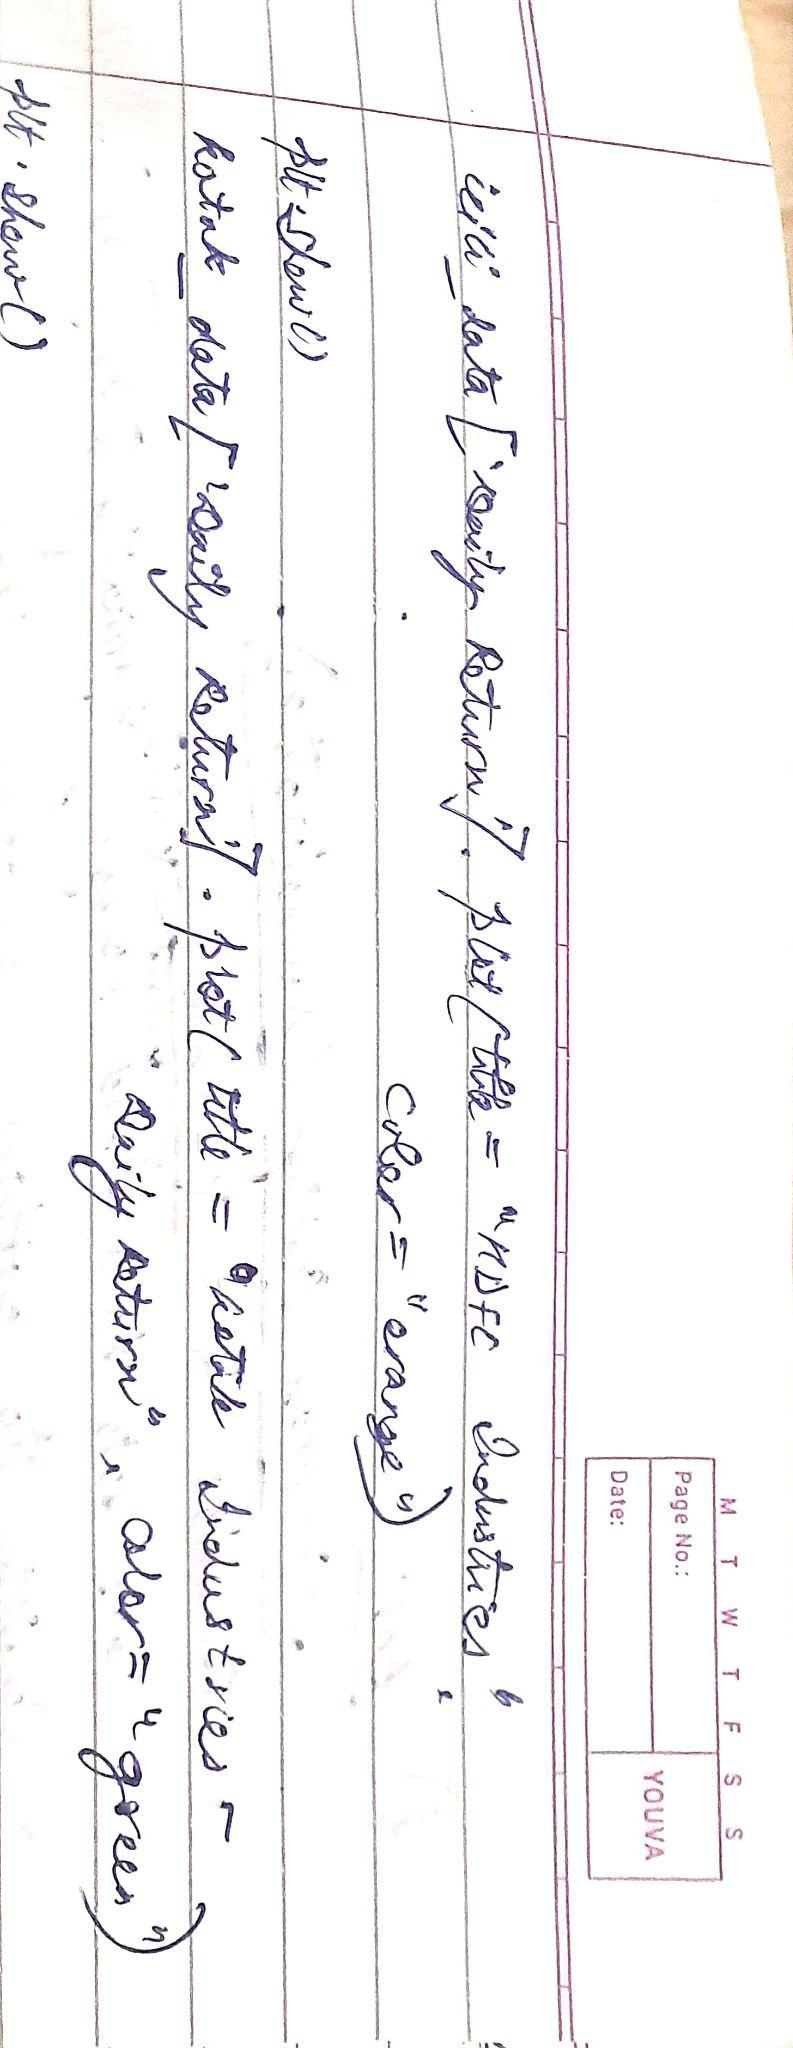 M T W T F S S
Page No.:
Date:
YOUVA
icici_data['Daily Return'].plot(title = "HDFC Industries",
color = "orange")
plt.show()
kotak_data['Daily Return'].plot(title = "Kotak Industries -
Daily Return", color = "green")
plt.show()